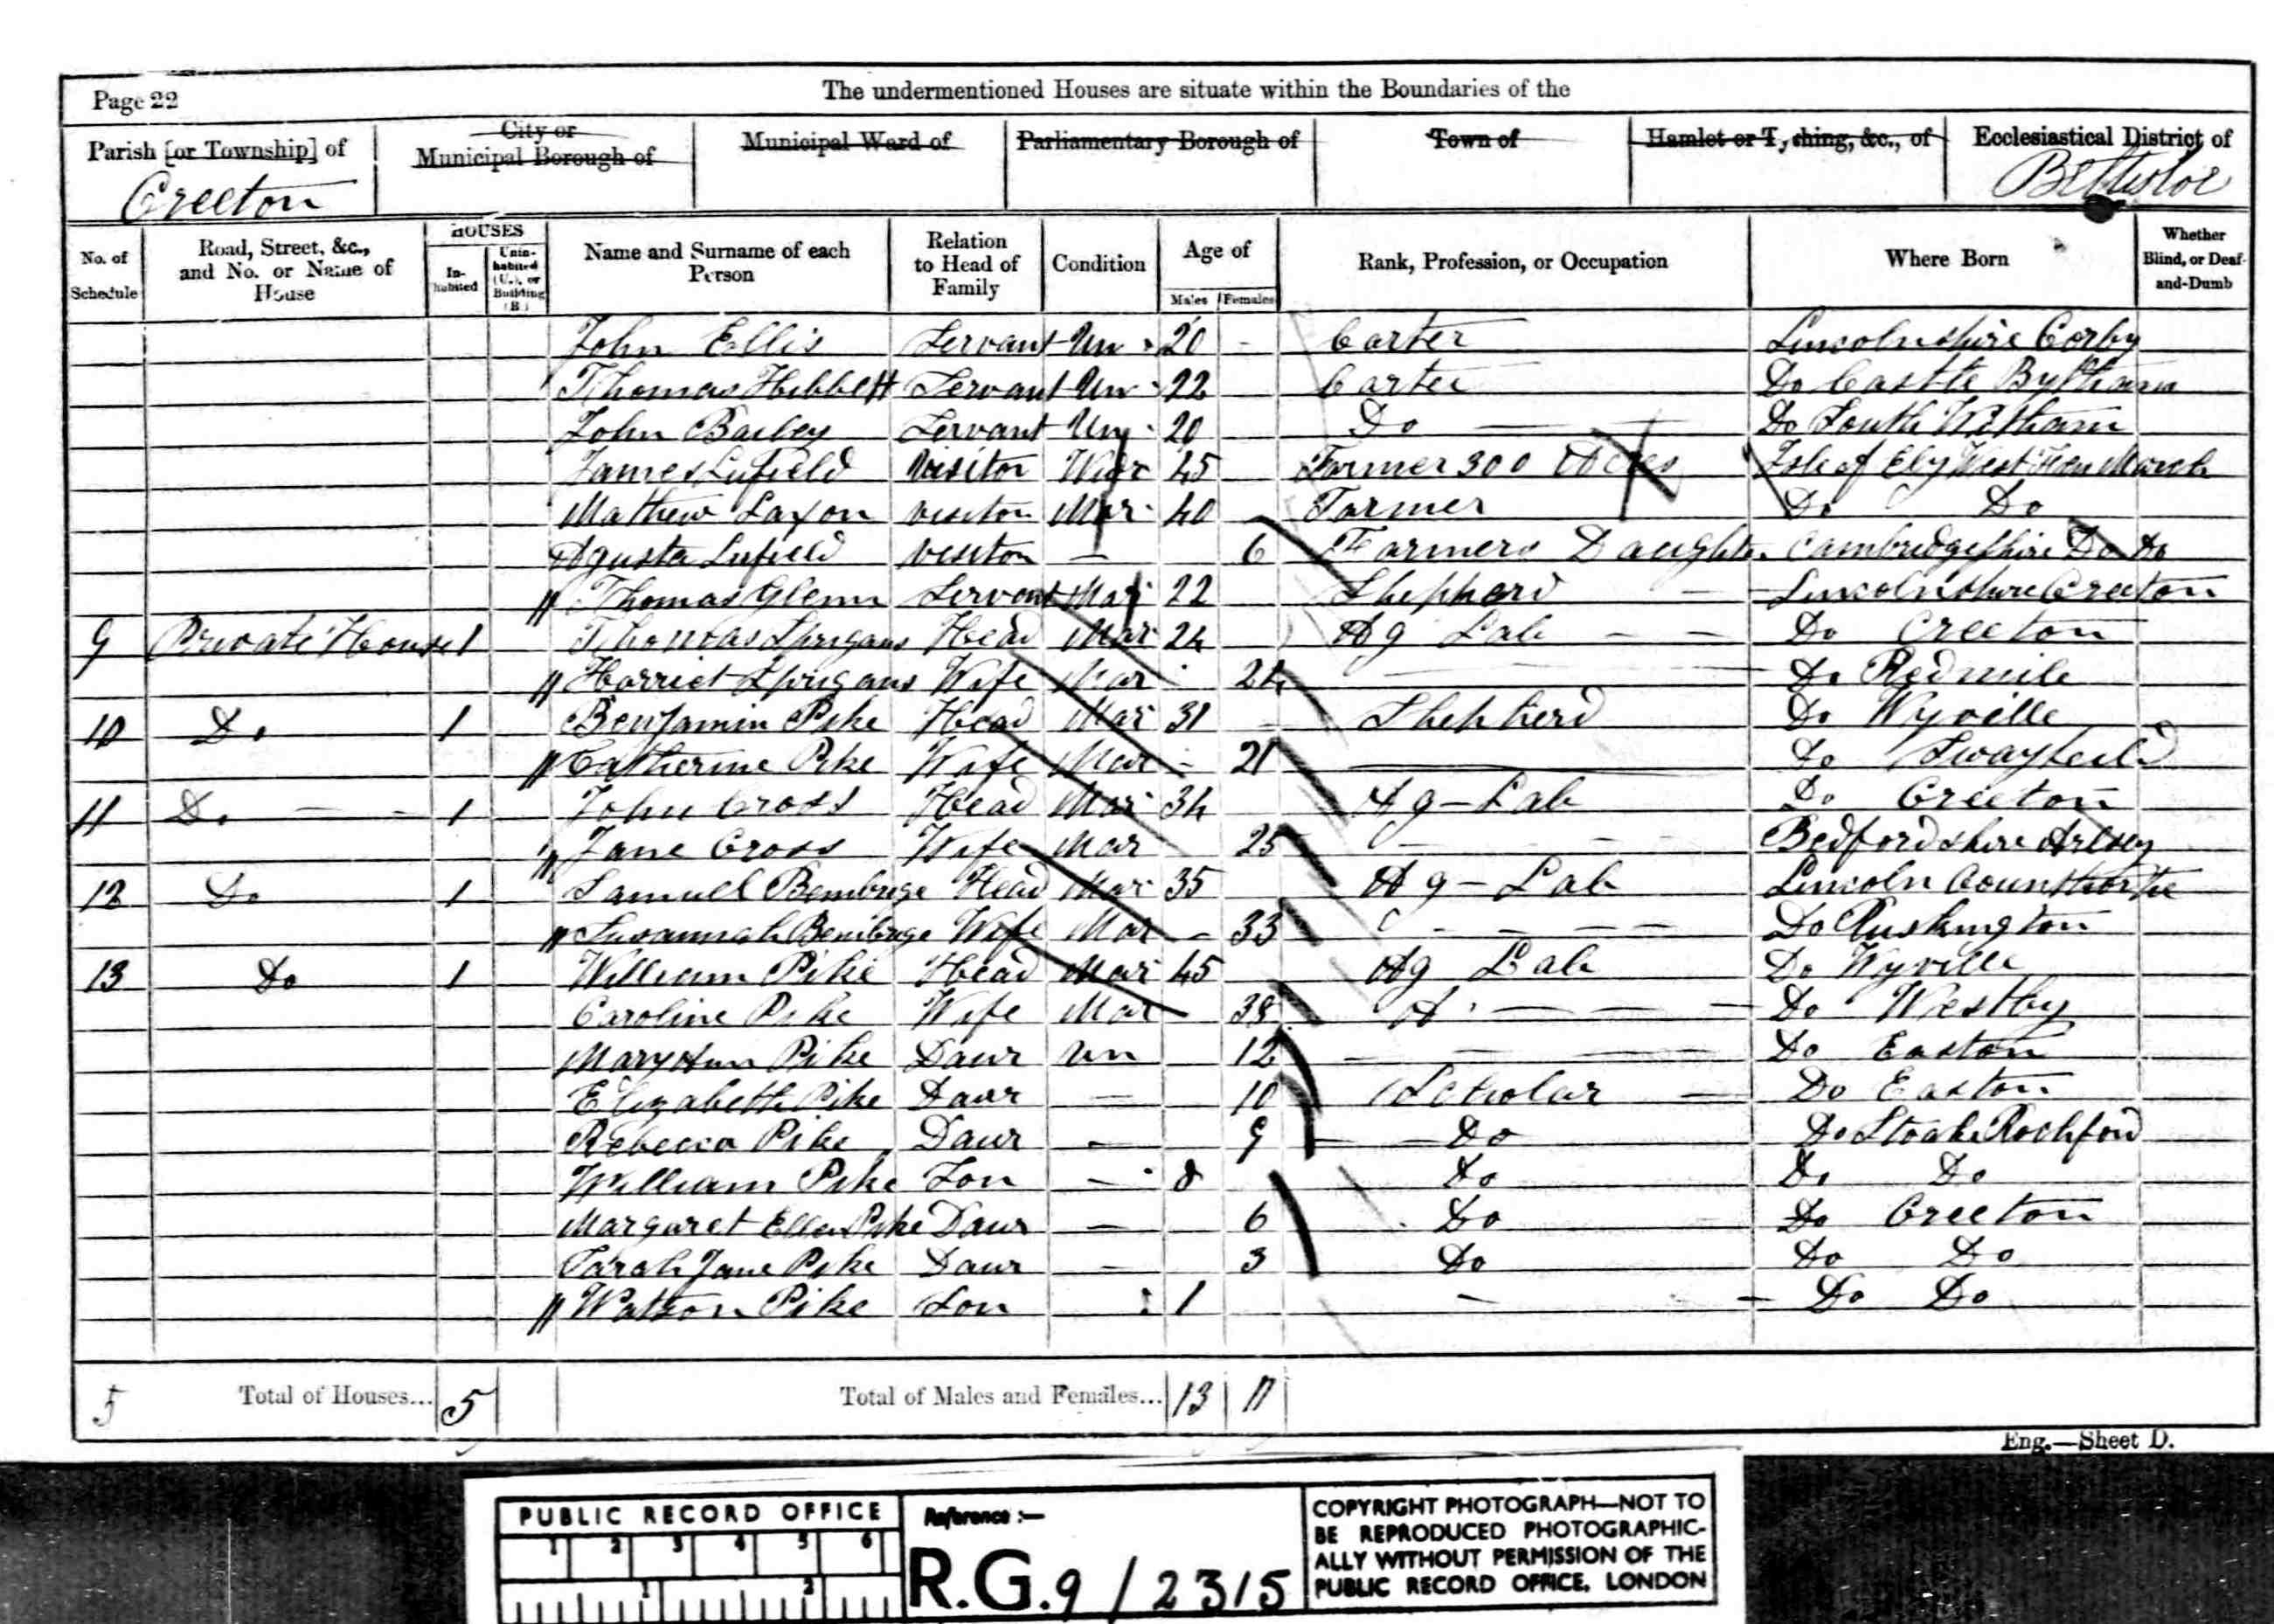 Page 22
The undermentioned Houses are situate within the Boundaries of the
Parish [or Township] of
Creeton
City or
Municipal Borough of
Municipal Ward of
Parliamentary Borough of
Town of
Hamlet or Tything, &c., of
Ecclesiastical District of
No. of Schedule
Road, Street, &c., and No. or Name of House
HOUSES
Inhabited
Uninhabited (U.), or Building (B.)
Name and Surname of each Person
Relation to Head of Family
Condition
Age of
Males Females
Rank, Profession, or Occupation
Where Born
Whether Blind, or Deaf-and-Dumb
John Ellis Servant Un 20 - Carter Lincolnshire Corby
Thomas Hibbett Servant Un 22 Carter Do Castle Bytham
John Bailey Servant Un 20 Do Do South Witham
James Lufield Visitor Widr 45 Farmer 300 Acres Isle of Ely West Fen March
Mathew Laxon Visitor Mar 40 Farmer Do Do
Agusta Lufield Visitor - 6 Farmers Daughter Cambridgeshire Do Do
Thomas Glenn Servant Mar 22 Shepherd - Lincolnshire Creeton
9 Private House 1 Thomas Sprigans Head Mar 24 Ag Lab - - Do Creeton
Harriet Sprigans Wife Mar - 24 Do Redmile
10 Do 1 Benjamin Pike Head Mar 31 Shepherd Do Wyville
Catherine Pike Wife Mar - 21 Do Swayfield
11 Do 1 John Cross Head Mar 34 Ag-Lab Do Creeton
Jane Cross Wife Mar 25 Bedfordshire Arlsey
12 Do 1 Samuel Bembrige Head Mar 35 Ag-Lab Lincoln Counthorpe
Susannah Bembrige Wife Mar - 33 Do Ruskington
13 Do 1 William Pike Head Mar 45 Ag Lab Do Wyville
Caroline Pike Wife Mar 38 Do Westby
Mary Ann Pike Daur Un 12 Do Easton
Elizabeth Pike Daur - 10 Scholar - Do Easton
Rebecca Pike Daur - 9 Do Do Stoake Rochford
William Pike Son - 8 Do Do Do
Margaret Ellen Pike Daur - 6 Do Do Creeton
Sarah Jane Pike Daur - 3 Do Do Do
Watson Pike Son 1 - - Do Do
5 Total of Houses... 5
Total of Males and Females... 13 11
Eng.—Sheet D.
PUBLIC RECORD OFFICE
1 2 3 4 5 6
1 2
Reference :—
R.G. 9/2315
COPYRIGHT PHOTOGRAPH—NOT TO
BE REPRODUCED PHOTOGRAPHIC-
ALLY WITHOUT PERMISSION OF THE
PUBLIC RECORD OFFICE, LONDON